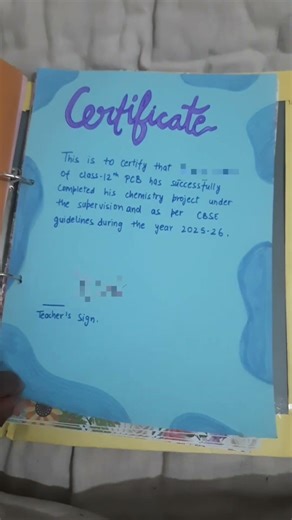 Certificate
This is to certify that
Of class-12th PCB has successfully
completed his chemistry project under
the supervision and as per CBSE
guidelines during the year 2025-26.
Teacher's Sign.